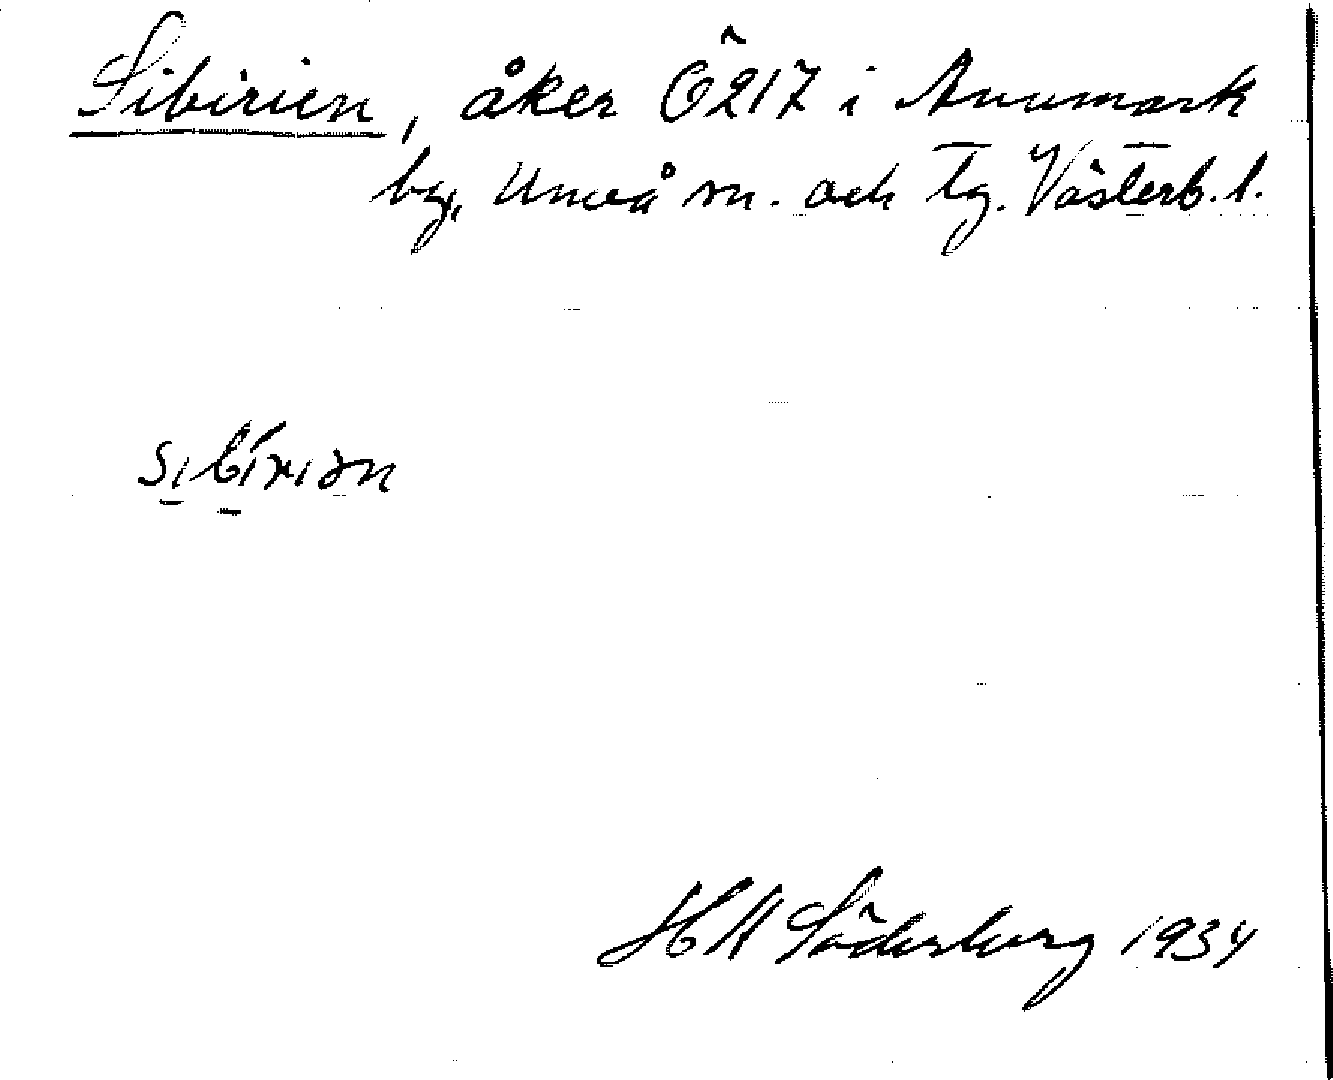 Sibirien, åker Ö217 i Anumark
by, Umeå sn. och tg. Västerb. l.
sibíriən
H H Söderberg 1934